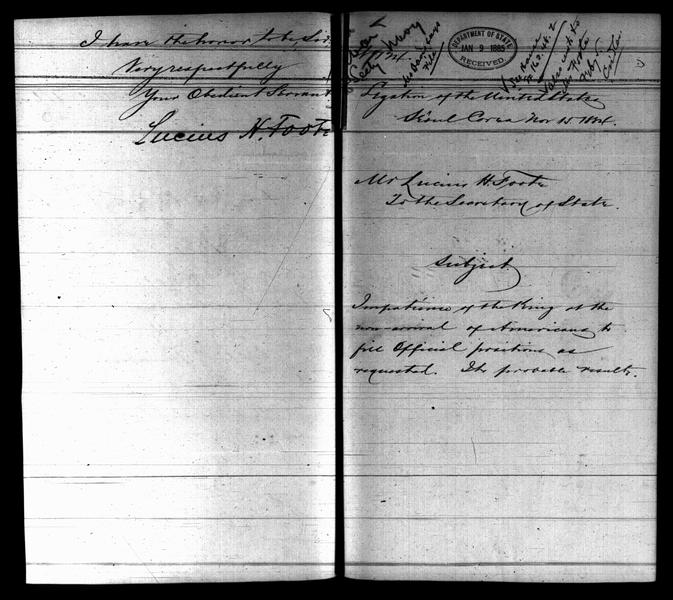 I have the honor to be, Sir,
Very respectfully
Your Obedient Servant
Lucius H. Foote
DEPARTMENT OF STATE
JAN 9 1885
RECEIVED
Legation of the United States
Séoul Corea Nov 15 1884.
Mr Lucius H. Foote
To the Secretary of State.
Subject.
Impatience of the King at the
non-arrival of Americans to
fill Official positions as
requested. Its probable results.